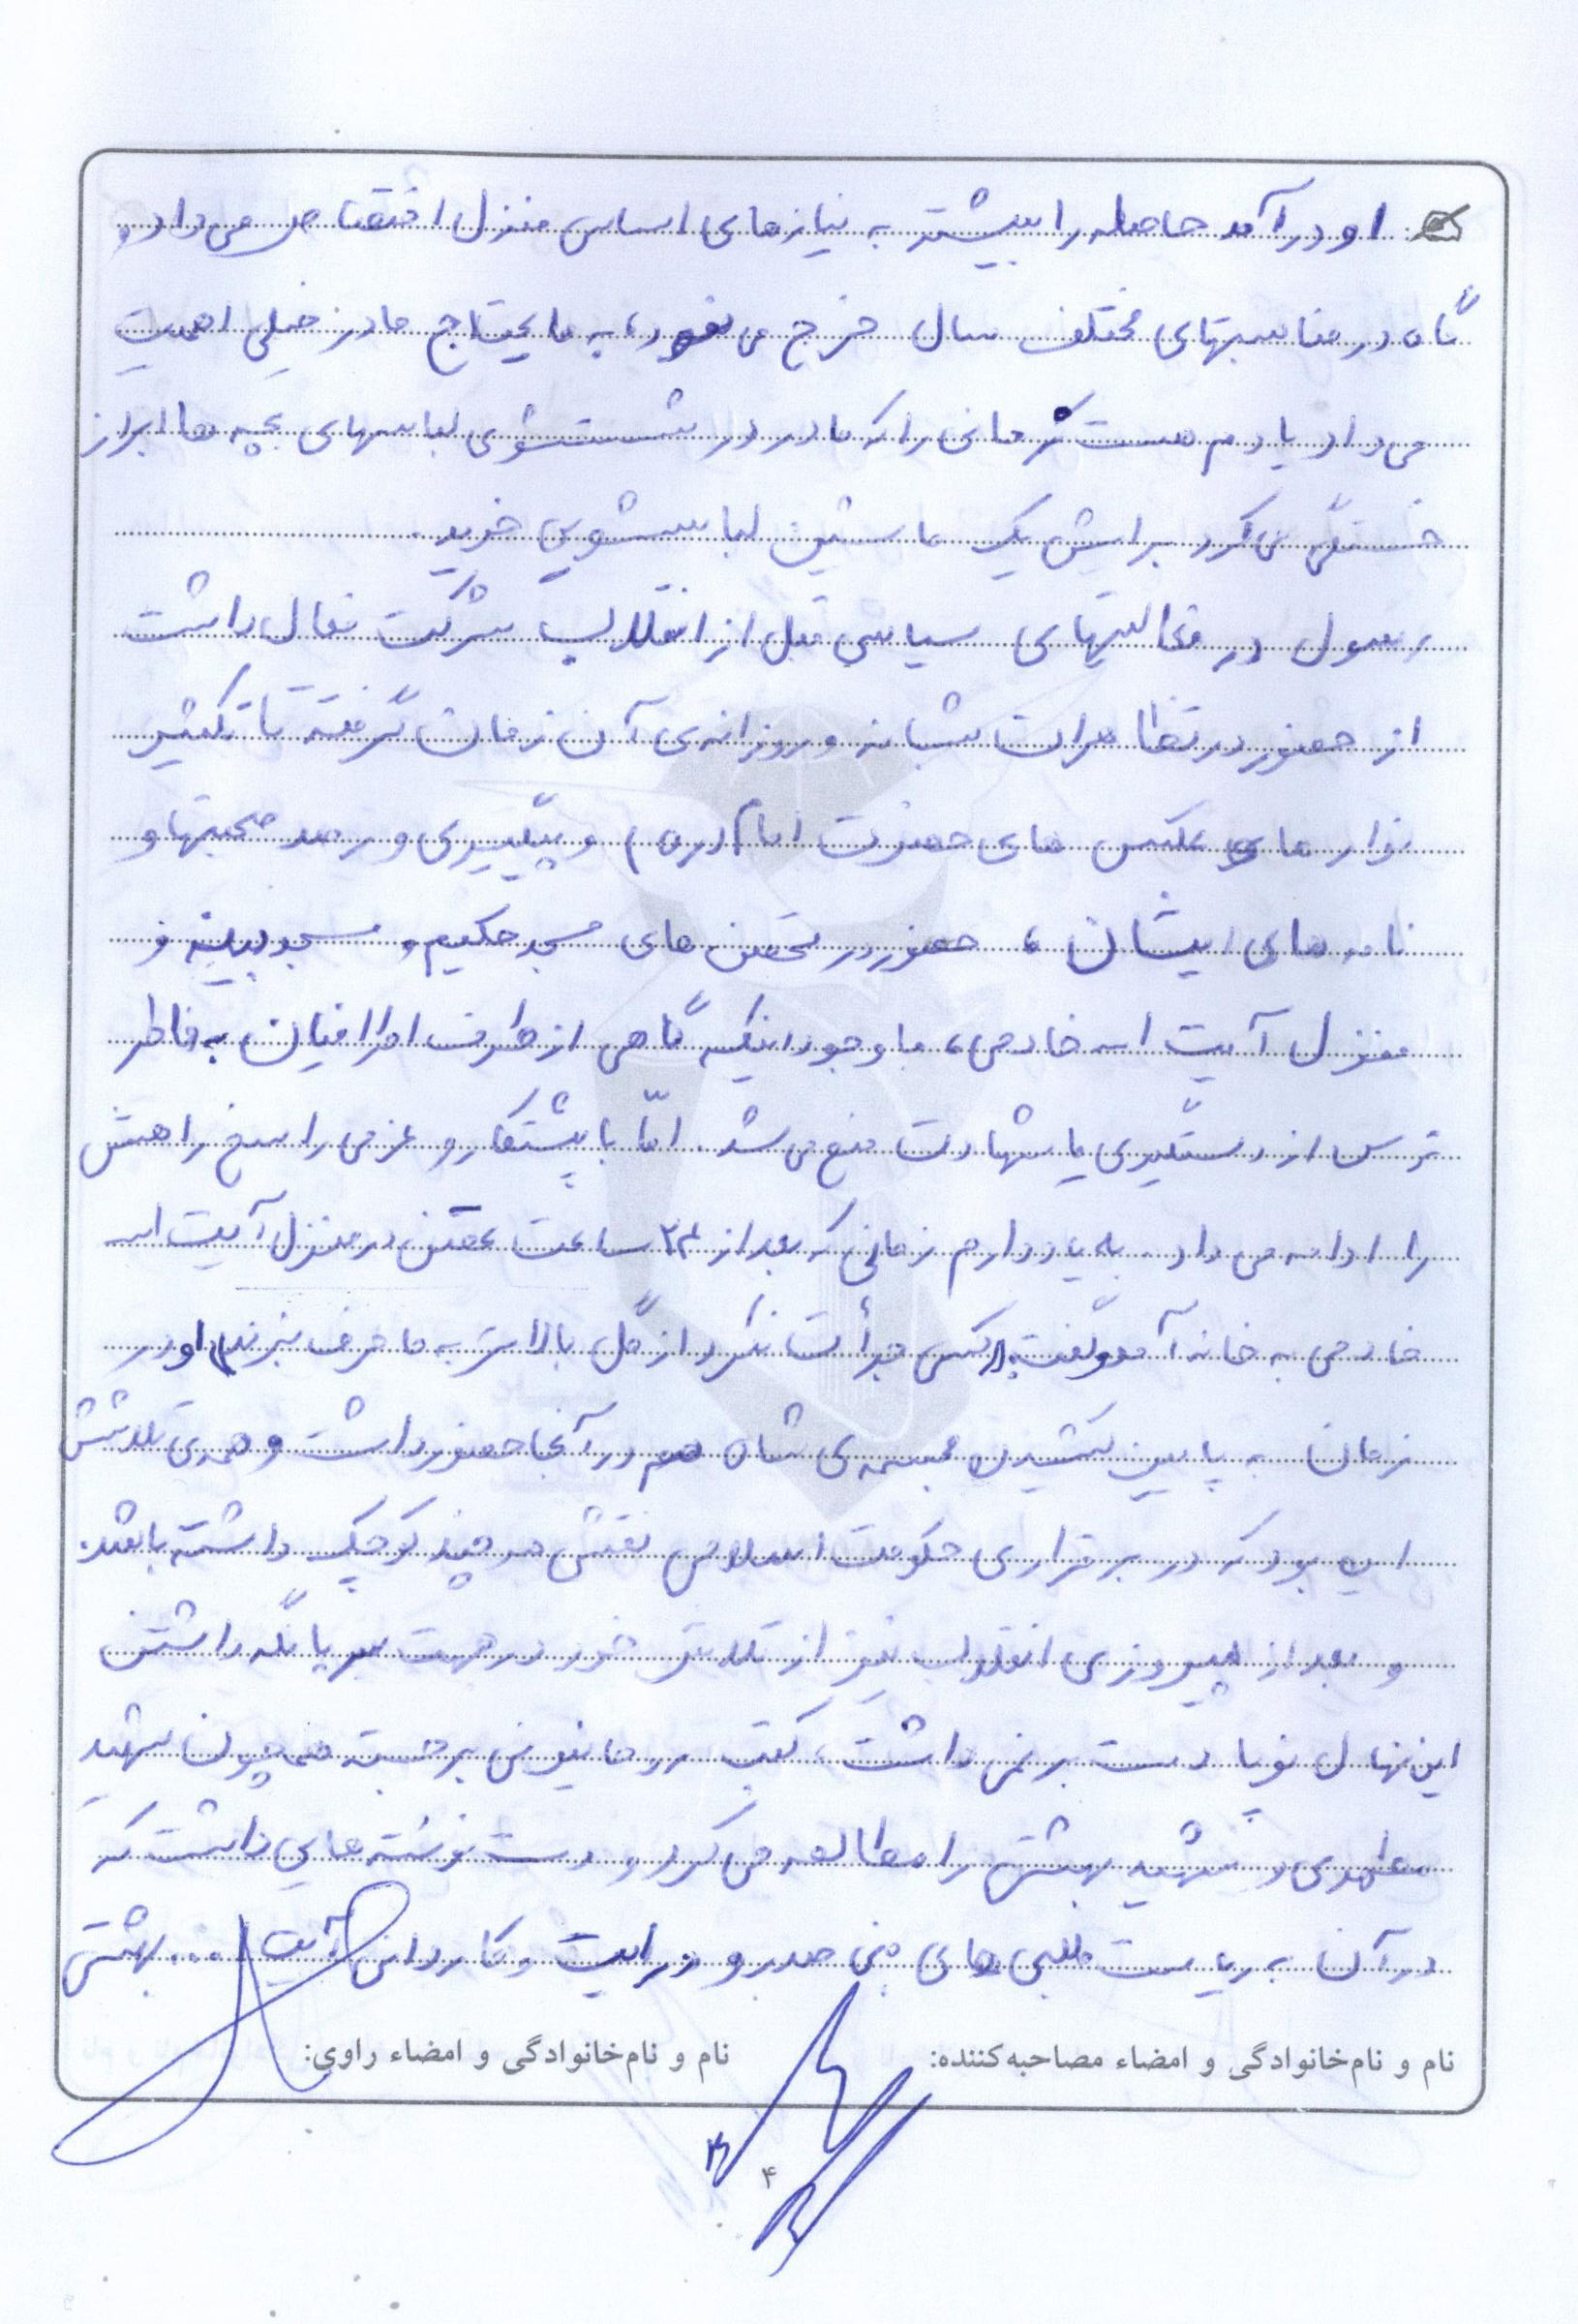 او درآمد حاصله را بیشتر به نیازهای اساسی منزل اختصاص می‌داد و
گاه در مناسبتهای مختلف سال خرج می‌نمود، به مایحتاج مادر خیلی اهمیت
می‌داد یادم هست زمانی را که مادر در شستشوی لباسهای بچه ها ابراز
خستگی می‌کرد برایش یک ماشین لباسشویی خرید.
رسول در فعالیتهای سیاسی قبل از انقلاب شرکت فعال داشت
از حضور در تظاهرات شبانه و روزانه‌ی آن زمان گرفته تا تکثیر
نوارهای عکس های حضرت امام (ره) و پیگیری و رصد صحبتها و
نامه های ایشان، حضور در تحصن های مسجد حکیم، مسجد و
منزل آیت اله خادمی، با وجود اینکه گاهی از طرف اطرافیان به خاطر
ترس از دستگیری یا شهادت منع می‌شد. امّا با پشتکار و عزمی راسخ راهش
را ادامه می‌داد. به یاد دارم زمانی که بعد از ۲۴ ساعت تحصن در منزل آیت اله
خادمی به خانه آمد و گفت: «کسی جرأت نکرد از گل بالاتر به ما حرف بزند» او در
زمان به پایین کشیدن مجسمه‌ی شاه هم در آنجا حضور داشت و همه‌ی تلاشش
این بود که در برقراری حکومت اسلامی نقشی هر چند کوچک داشته باشد.
و بعد از پیروزی انقلاب نیز از تلاش خود در جهت سرپا نگه داشتن
این نهال نوپا دست برنمی داشت، کتب روحانیونی برجسته همچون شهید
مطهری و شهید بهشتی را مطالعه می‌کرد و دست نوشته هایی داشت که
در آن به ریاست طلبی های بنی صدر و درایت و کاردانی آیت ا... بهشتی
نام و نام‌خانوادگی و امضاء مصاحبه‌کننده: نام و نام‌خانوادگی و امضاء راوی:
۴